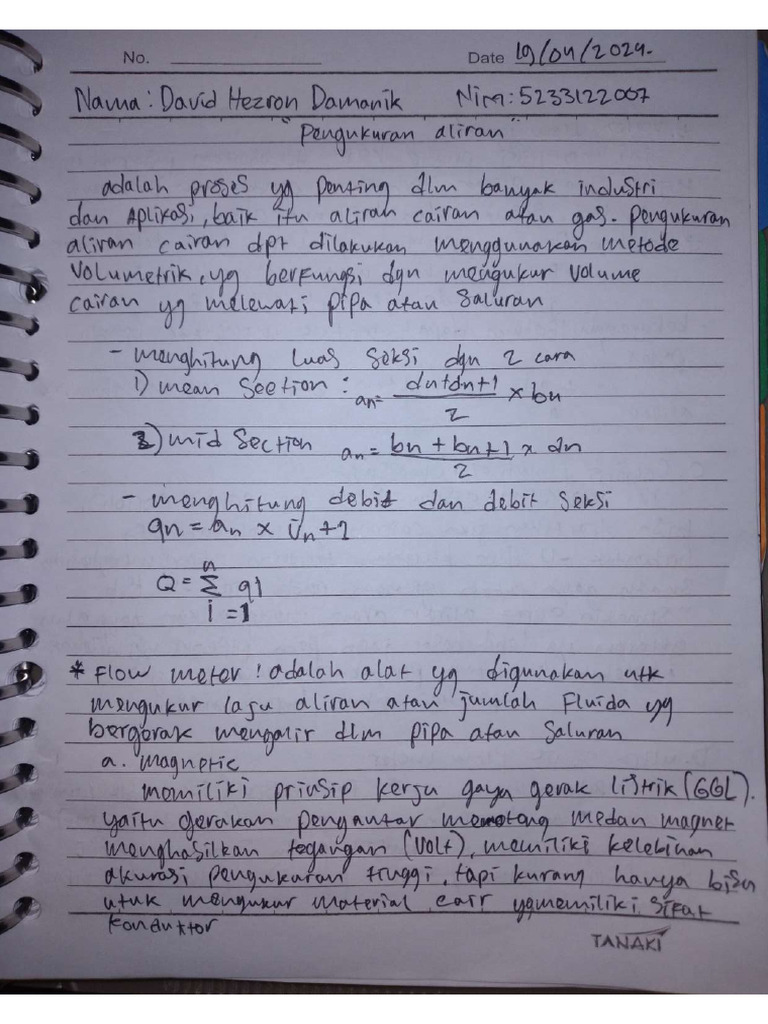 No. Date 19/04/2024.
Nama: David Hezron Damanik Nim: 5233122007
"Pengukuran aliran"
adalah proses yg penting dlm banyak industri
dan Aplikasi, baik itu aliran cairan atau gas. Pengukuran
aliran cairan dpt dilakukan menggunakan metode
Volumetrik, yg berfungsi dgn mengukur Volume
cairan yg melewati pipa atau Saluran
- menghitung luas Seksi dgn 2 cara
1) mean Section : an= dn+dn+1 / 2 x bn
2) mid Section an= bn + bn+1 / 2 x dn
- menghitung debit dan debit Seksi
qn = an x Un+1
Q = n Σ i=1 q1
* Flow meter : adalah alat yg digunakan utk
mengukur laju aliran atau jumlah Fluida yg
bergerak mengalir dlm pipa atau Saluran
a. magnetic
memiliki prinsip kerja gaya gerak listrik (GGL).
yaitu gerakan pengantar memotong medan magnet
menghasilkan tegangan (Volt), memiliki kelebihan
akurasi pengukuran tinggi, tapi kurang hanya bisa
utuk mengukur material cair yg memiliki sifat
Konduktor
TANAKI